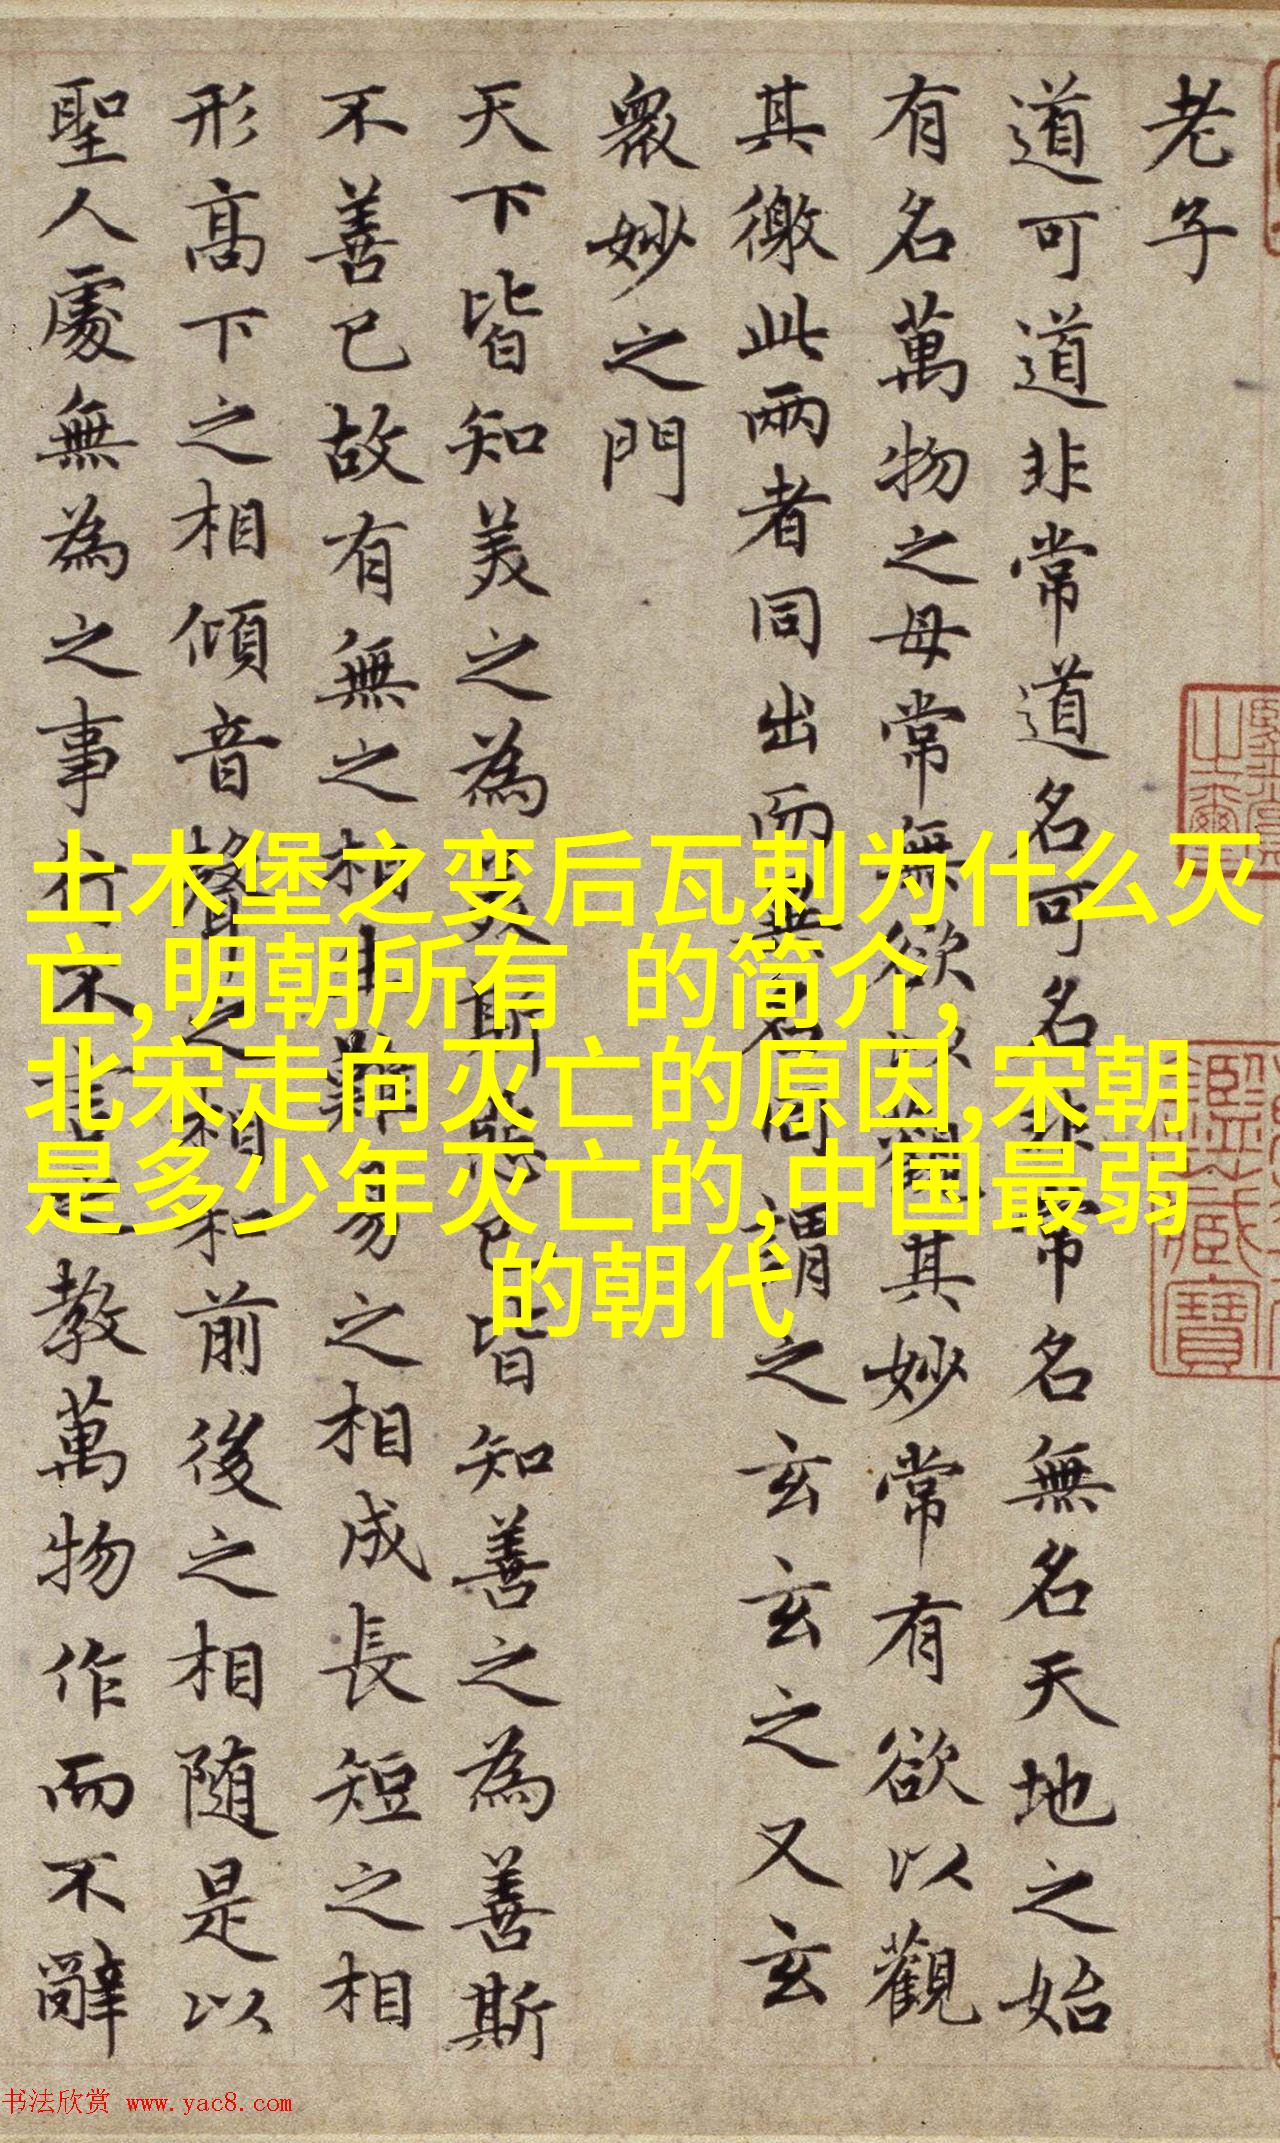 老子
道可道非常道名可名非常名無名天地之始
有名萬物之母常無欲以觀其妙常有欲以觀
其徼此兩者同出而異名同謂之玄玄之又玄
衆妙之門
天下皆知美之為美斯惡已皆知善之為善斯
不善已故有無之相生難易之相成長短之相
形高下之相傾音聲之相和前後之相随是以
聖人處無為之事行不言之教萬物作而不辭
土木堡之变后瓦剌为什么灭
亡,明朝所有 的简介,
北宋走向灭亡的原因,宋朝
是多少年灭亡的,中国最弱
的朝代
书法欣赏 www.yac8.com